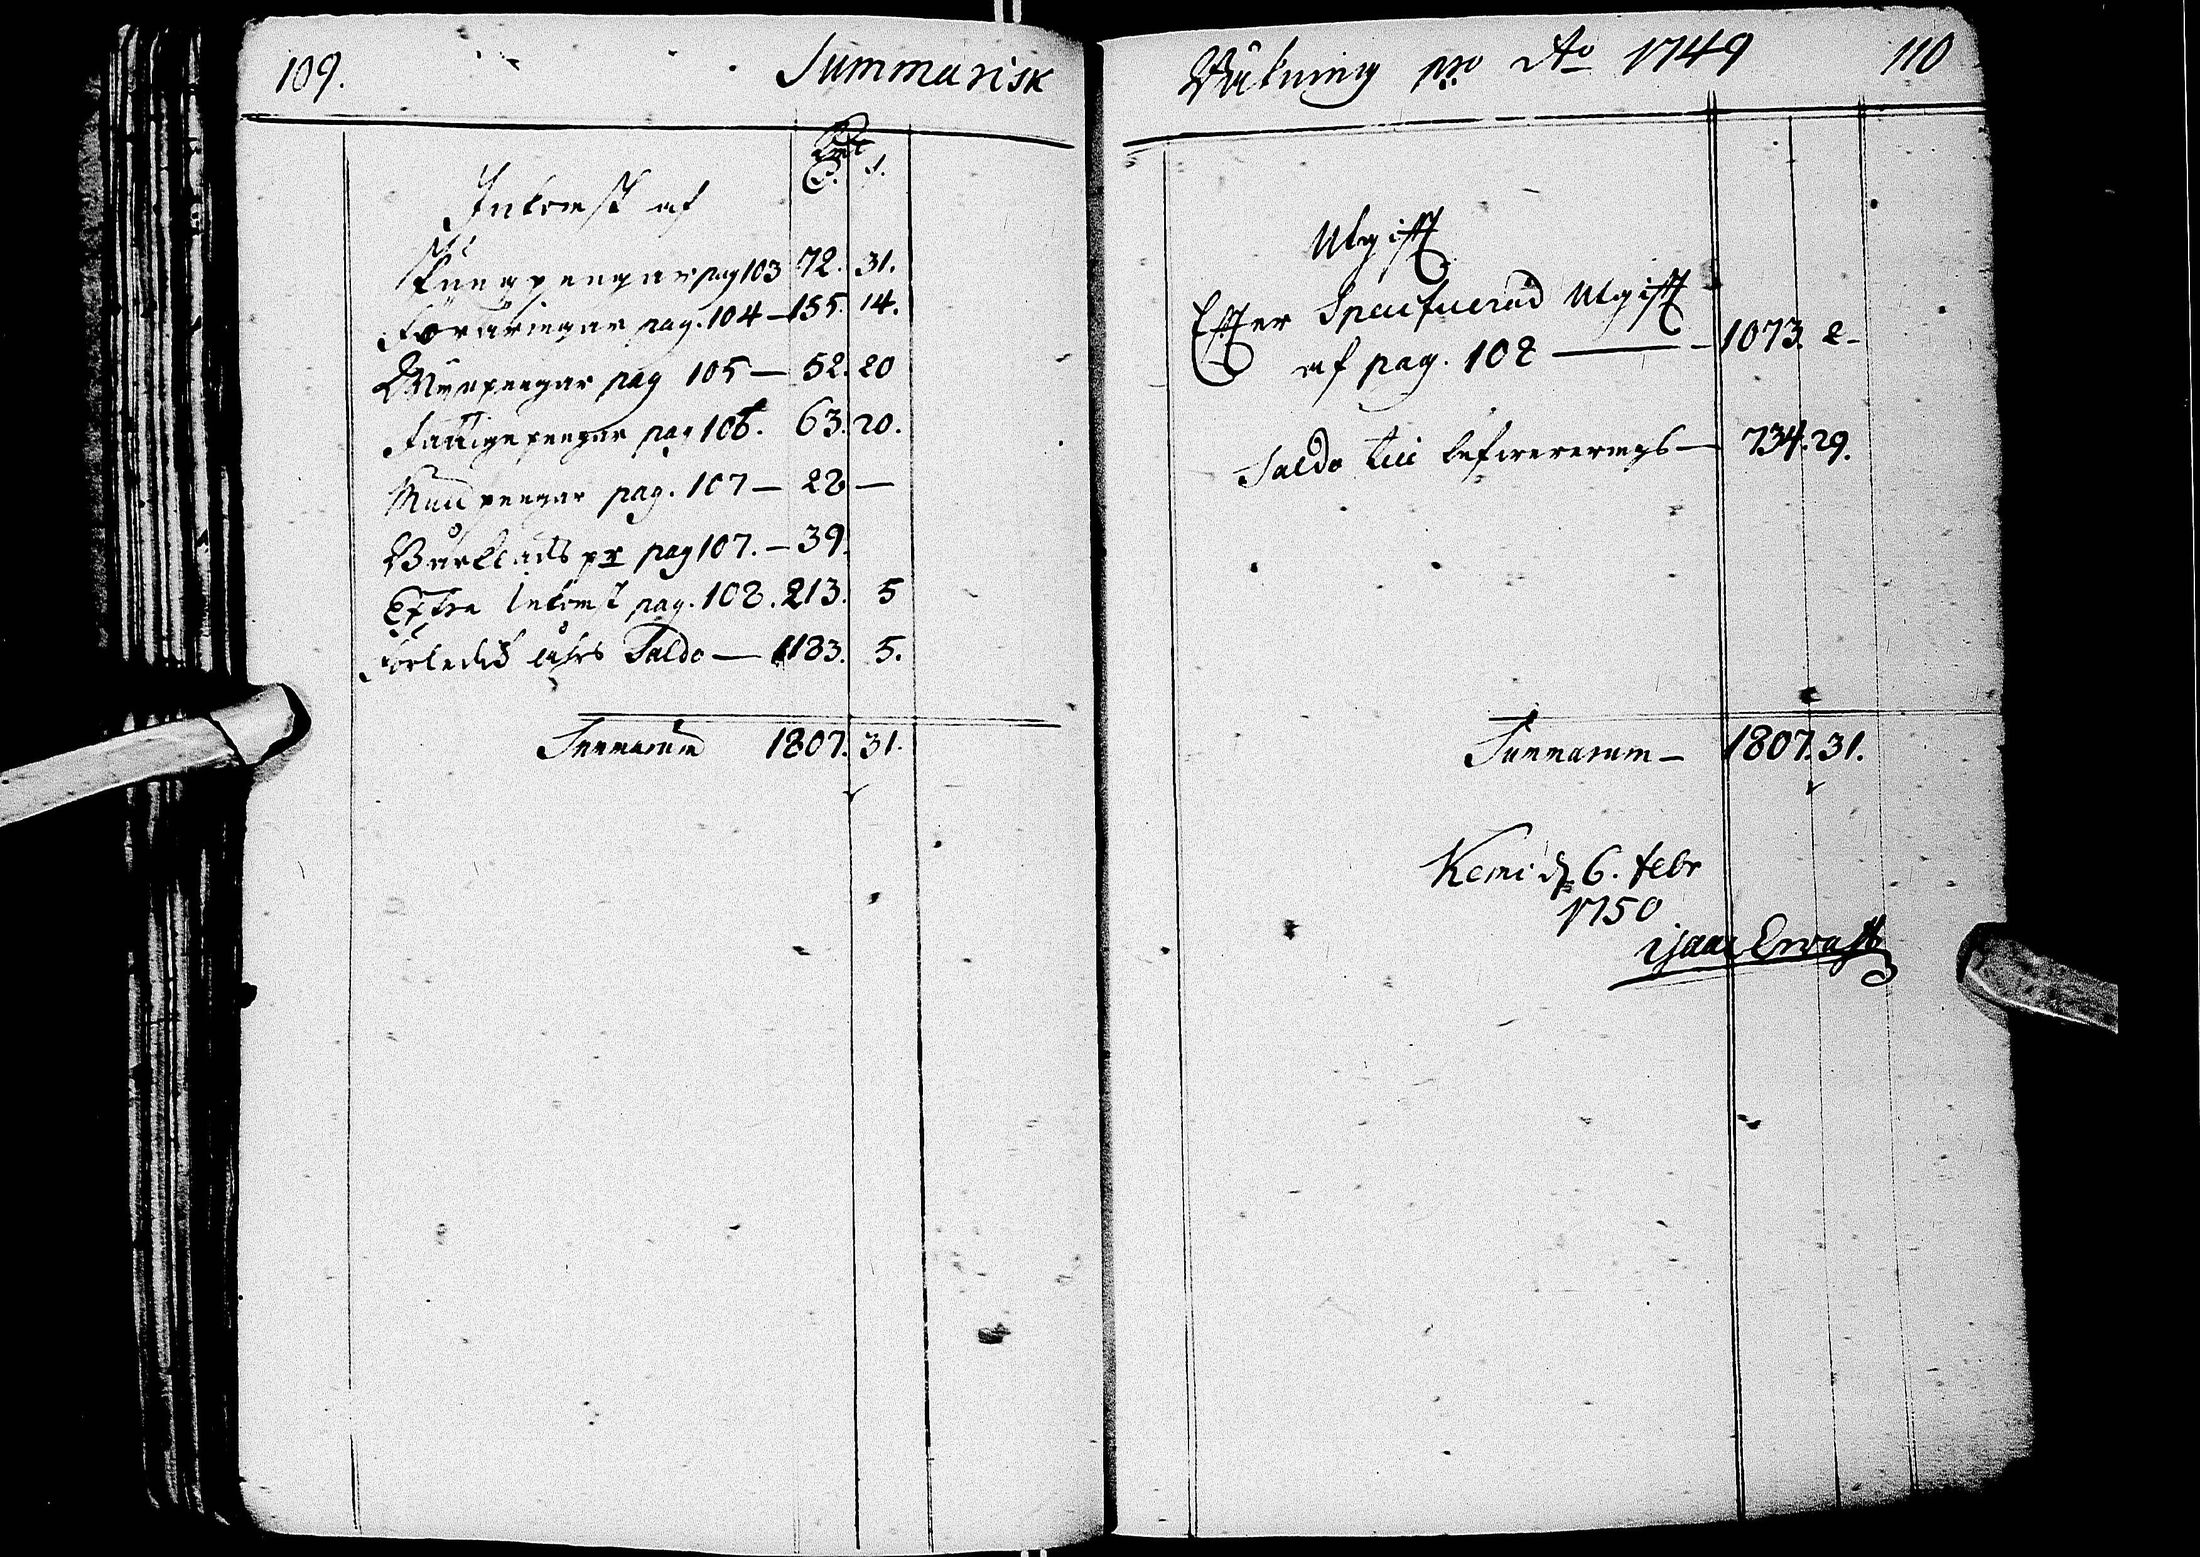 109. Summarisk
Inkomst af
pag 103 72. 31.
pag. 104 — 155. 14.
pag 105 — 52. 20
Fattigepengar pag 106. 63. 20.
pag. 107 — 28 —
pag 107. — 39.
Extra Inkomst pag. 108. 213. 5
Förledit åhrs Saldo — 1183. 5.
Summarum 1807. 31.
Räkning pro Ao 1749 110
Utgifft
Effter Specificerad Utgifft
af pag. 108 — 1073. 2 –
Saldo till — 734. 29.
Summarum — 1807. 31.
Kemi d. 6. febr
1750
Isaac Ervast